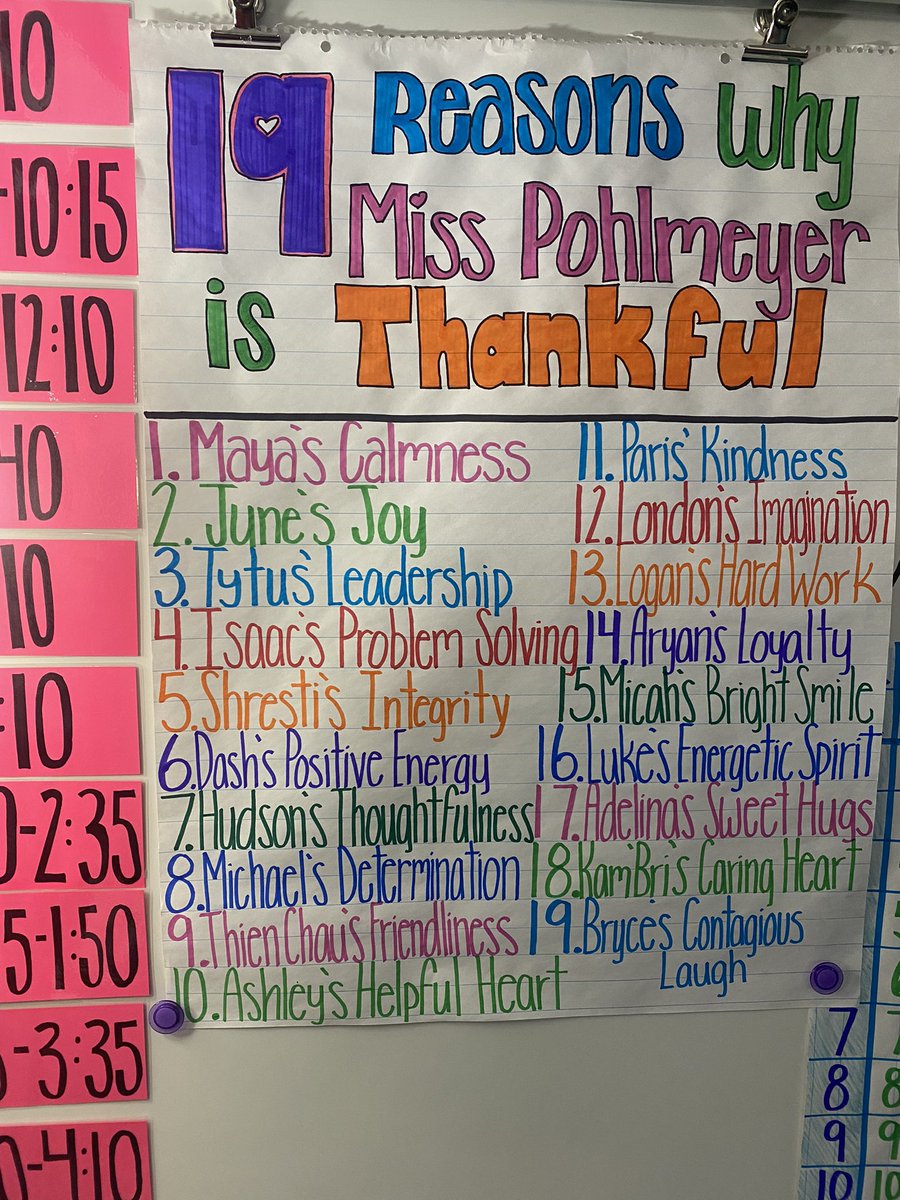 19 Reasons why
Miss Pohlmeyer
is Thankful
1. Maya's Calmness
2. June's Joy
3. Tytus' Leadership
4. Isaac's Problem Solving
5. Shresti's Integrity
6. Dash's Positive Energy
7. Hudson's Thoughtfulness
8. Michael's Determination
9. Thien Chau's Friendliness
10. Ashley's Helpful Heart
11. Paris' Kindness
12. London's Imagination
13. Logan's Hard Work
14. Aryan's Loyalty
15. Micah's Bright Smile
16. Luke's Energetic Spirit
17. Adelina's Sweet Hugs
18. KamBri's Caring Heart
19. Bryce's Contagious
Laugh
10
-10:15
12:10
10
10
:10
-2:35
5-1:50
-3:35
-4:10
7
8 8
9 9
10 10